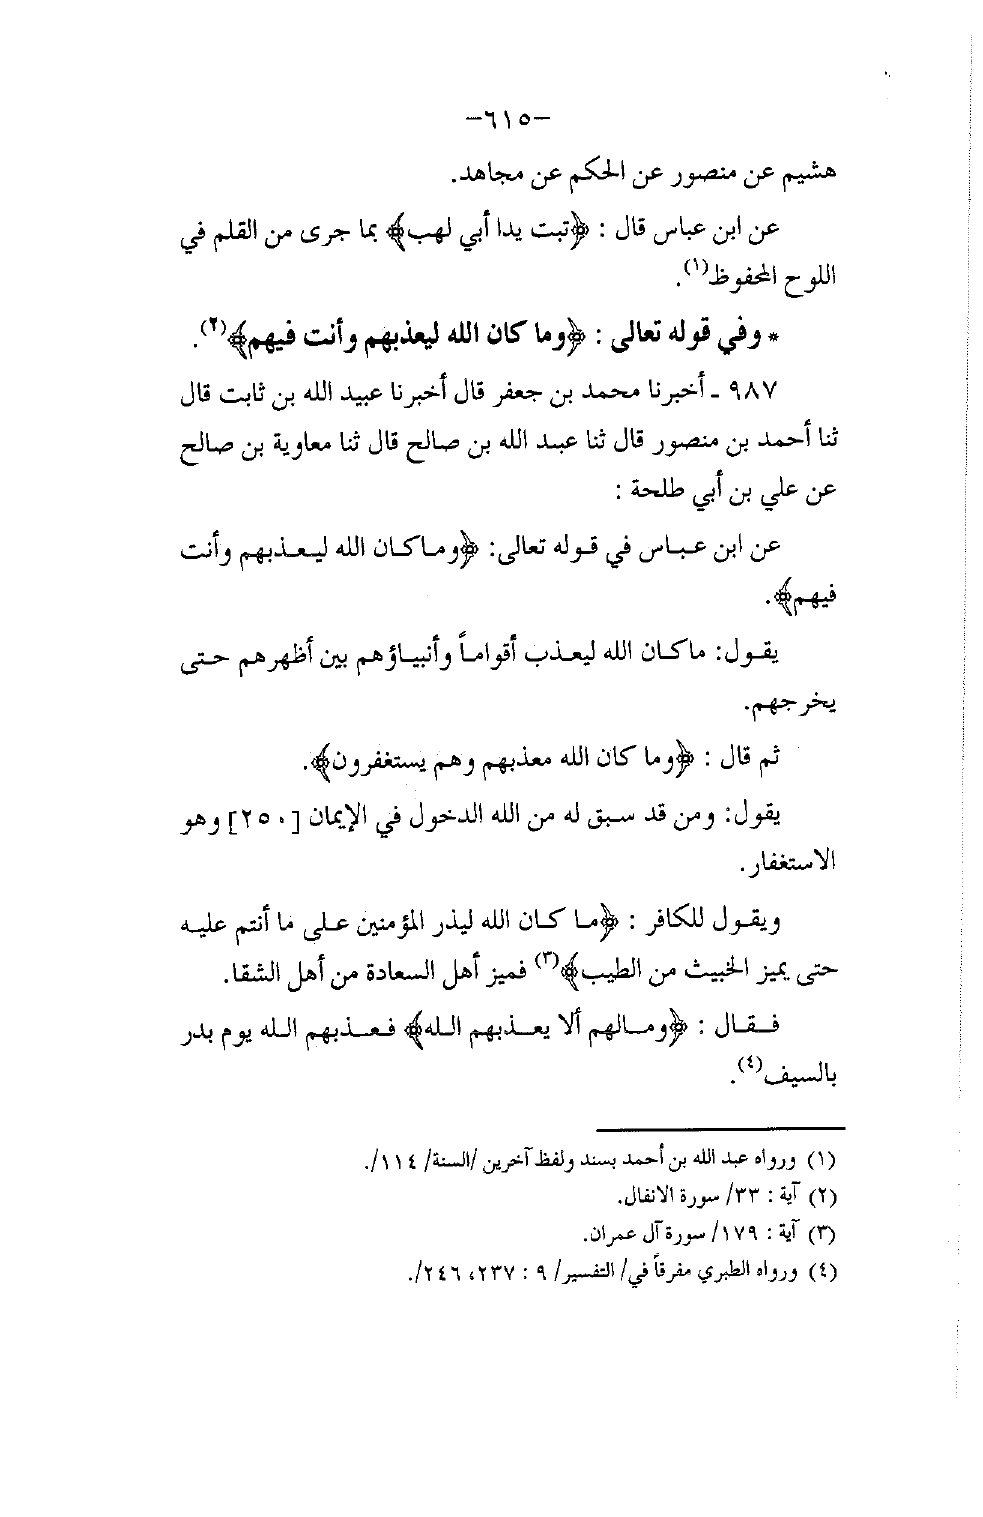 -٦١٥-
هشيم عن منصور عن الحكم عن مجاهد.
عن ابن عباس قال : ﴿تبت يدا أبي لهب﴾ بما جرى من القلم في
اللوح المحفوظ(١).
* وفي قوله تعالى : ﴿وما كان الله ليعذبهم وأنت فيهم﴾(٢).
٩٨٧ ـ أخبرنا محمد بن جعفر قال أخبرنا عبيد الله بن ثابت قال
ثنا أحمد بن منصور قال ثنا عبد الله بن صالح قال ثنا معاوية بن صالح
عن علي بن أبي طلحة :
عن ابن عباس في قوله تعالى: ﴿وماكان الله ليعذبهم وأنت
فيهم﴾.
يقول: ماكان الله ليعذب أقواماً وأنبياؤهم بين أظهرهم حتى
يخرجهم.
ثم قال : ﴿وما كان الله معذبهم وهم يستغفرون﴾.
يقول: ومن قد سبق له من الله الدخول في الإيمان [٢٥٠] وهو
الاستغفار.
ويقول للكافر : ﴿ما كان الله ليذر المؤمنين على ما أنتم عليه
حتى يميز الخبيث من الطيب﴾(٣) فميز أهل السعادة من أهل الشقا.
فقال : ﴿ومالهم ألا يعذبهم الله﴾ فعذبهم الله يوم بدر
بالسيف(٤).
(١) ورواه عبد الله بن أحمد بسند ولفظ آخرين /السنة/ ١١٤/.
(٢) آية : ٣٣/ سورة الانفال.
(٣) آية : ١٧٩/ سورة آل عمران.
(٤) ورواه الطبري مفرقاً في/ التفسير/ ٩ : ٢٣٧، ٢٤٦/.